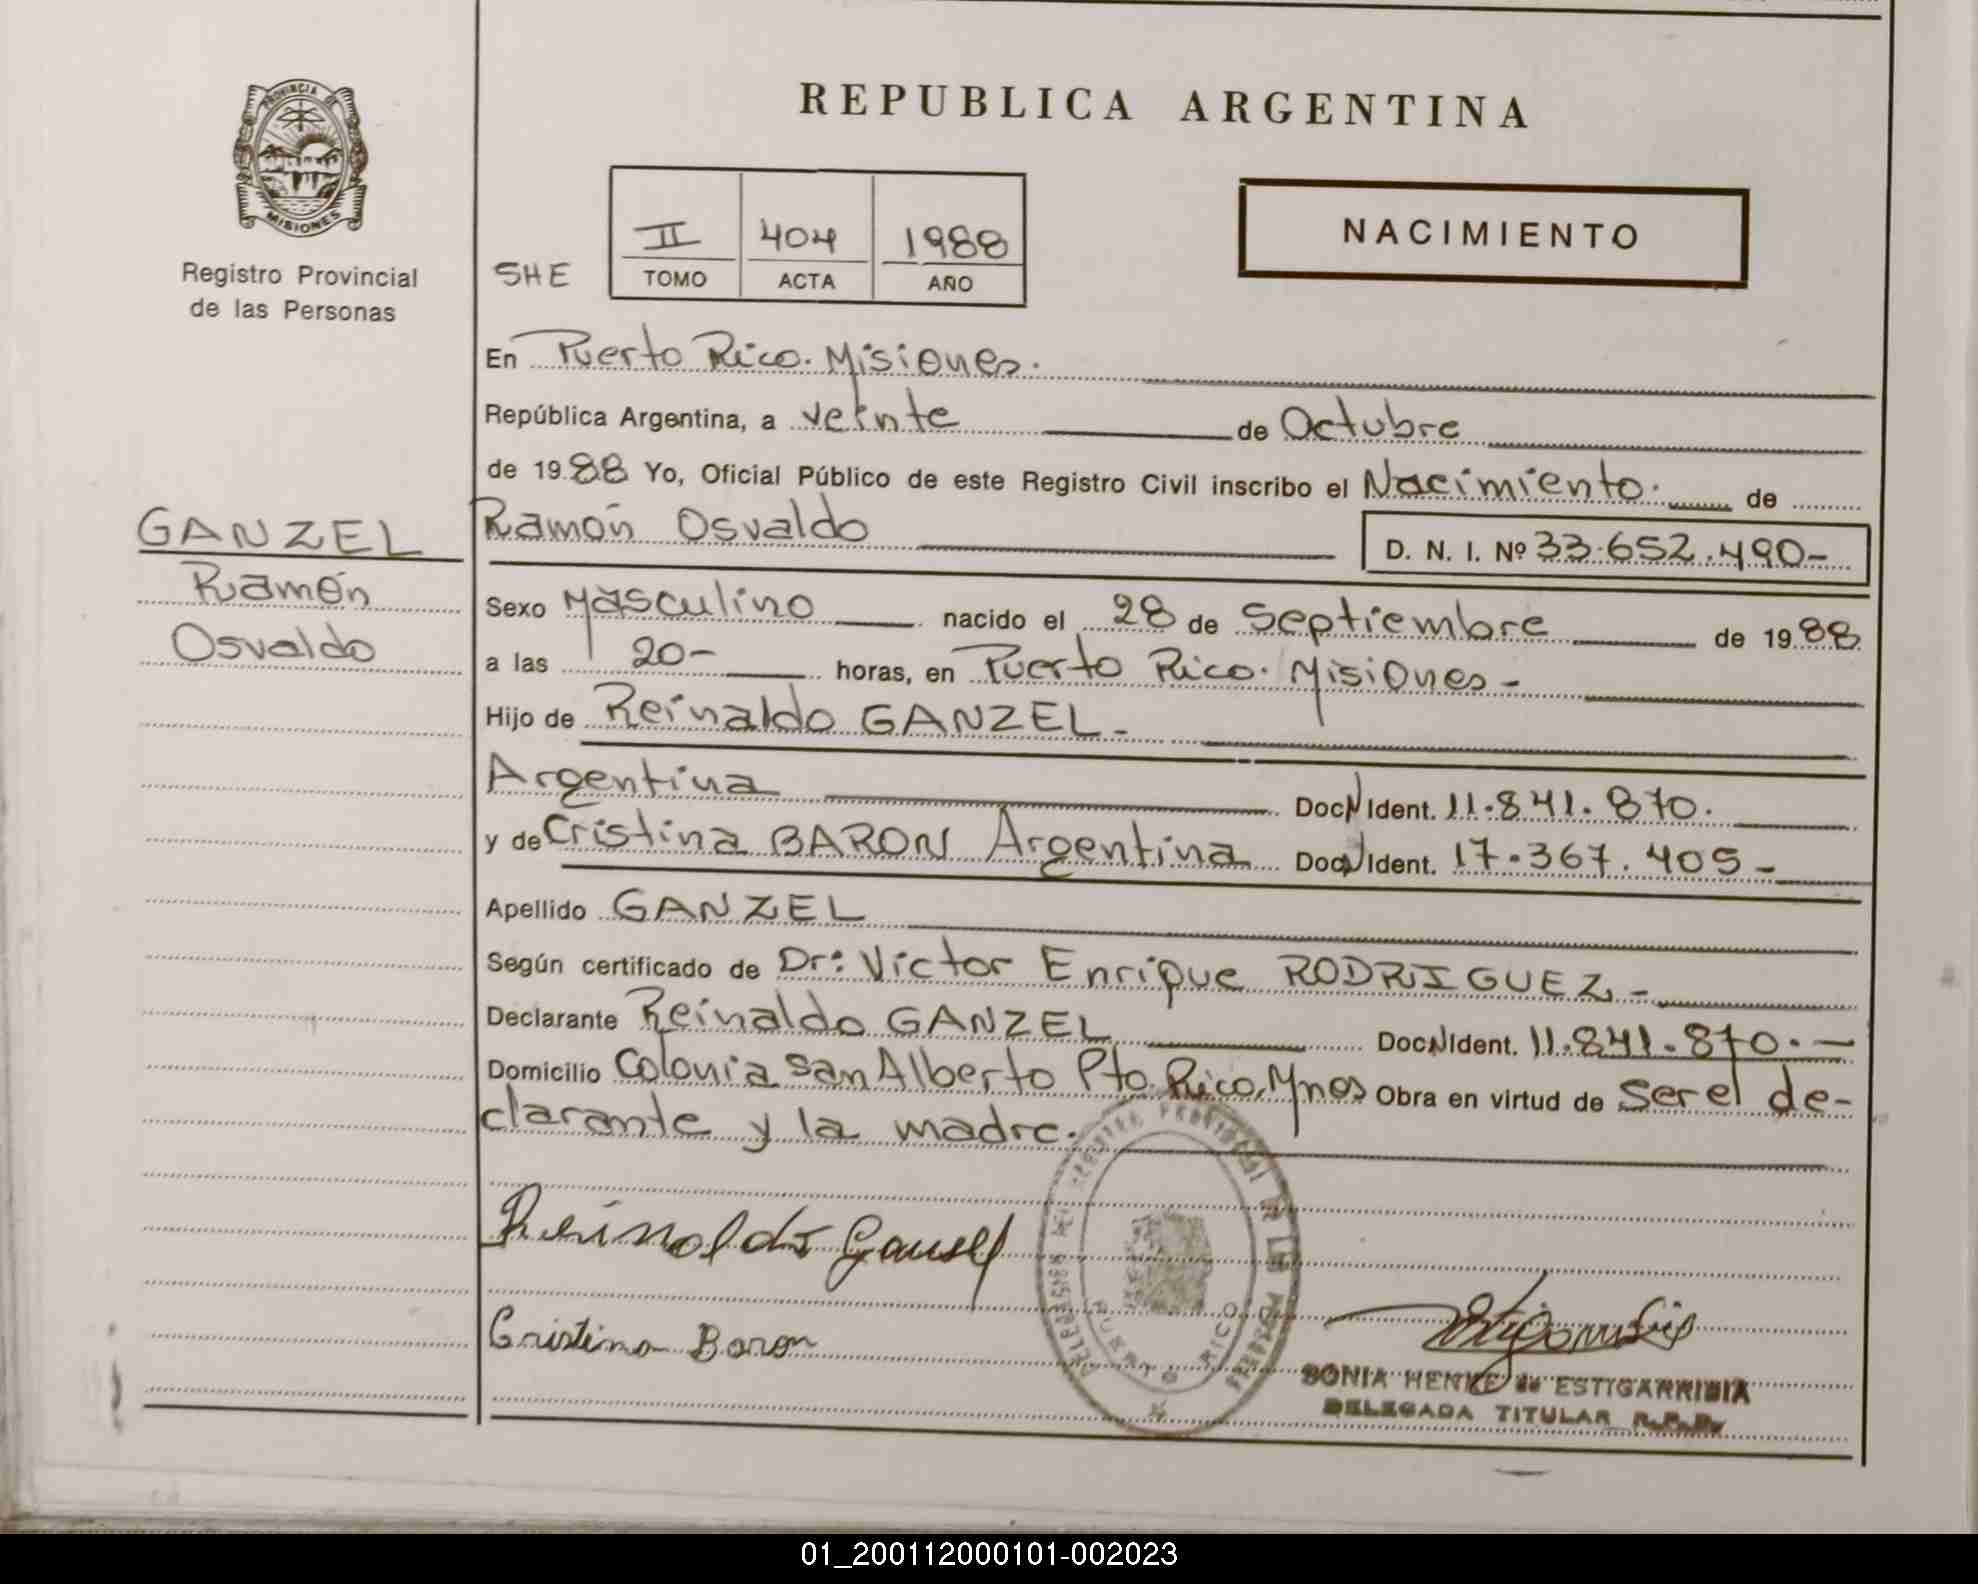 REPUBLICA ARGENTINA
PROVINCIA DE
MISIONES
Registro Provincial
de las Personas
SHE
II 404 1988
TOMO ACTA AÑO
NACIMIENTO
En Puerto Rico. Misiones.
República Argentina, a veinte de Octubre
de 1988 Yo, Oficial Público de este Registro Civil inscribo el Nacimiento. de
GANZEL
Ramón
Osvaldo
Ramón Osvaldo D. N. I. Nº 33.652.490-
Sexo Masculino nacido el 28 de Septiembre de 1988
a las 20- horas, en Puerto Rico. Misiones-
Hijo de Reinaldo GANZEL-
Argentina Doc N Ident. 11.841.870.
y de Cristina BARON Argentina Doc N Ident. 17.367.405-
Apellido GANZEL
Según certificado de Dr: Victor Enrique RODRIGUEZ-
Declarante Reinaldo GANZEL Doc N Ident. 11.841.870.-
Domicilio Colonia San Alberto Pto. Rico, Mnes Obra en virtud de Ser el de-
clarante y la madre.
Reinoldo Gansel
Cristina Baron
PUERTO RICO
SONIA HENKE de ESTIGARRIBIA
DELEGADA TITULAR R.P.P.
01_200112000101-002023